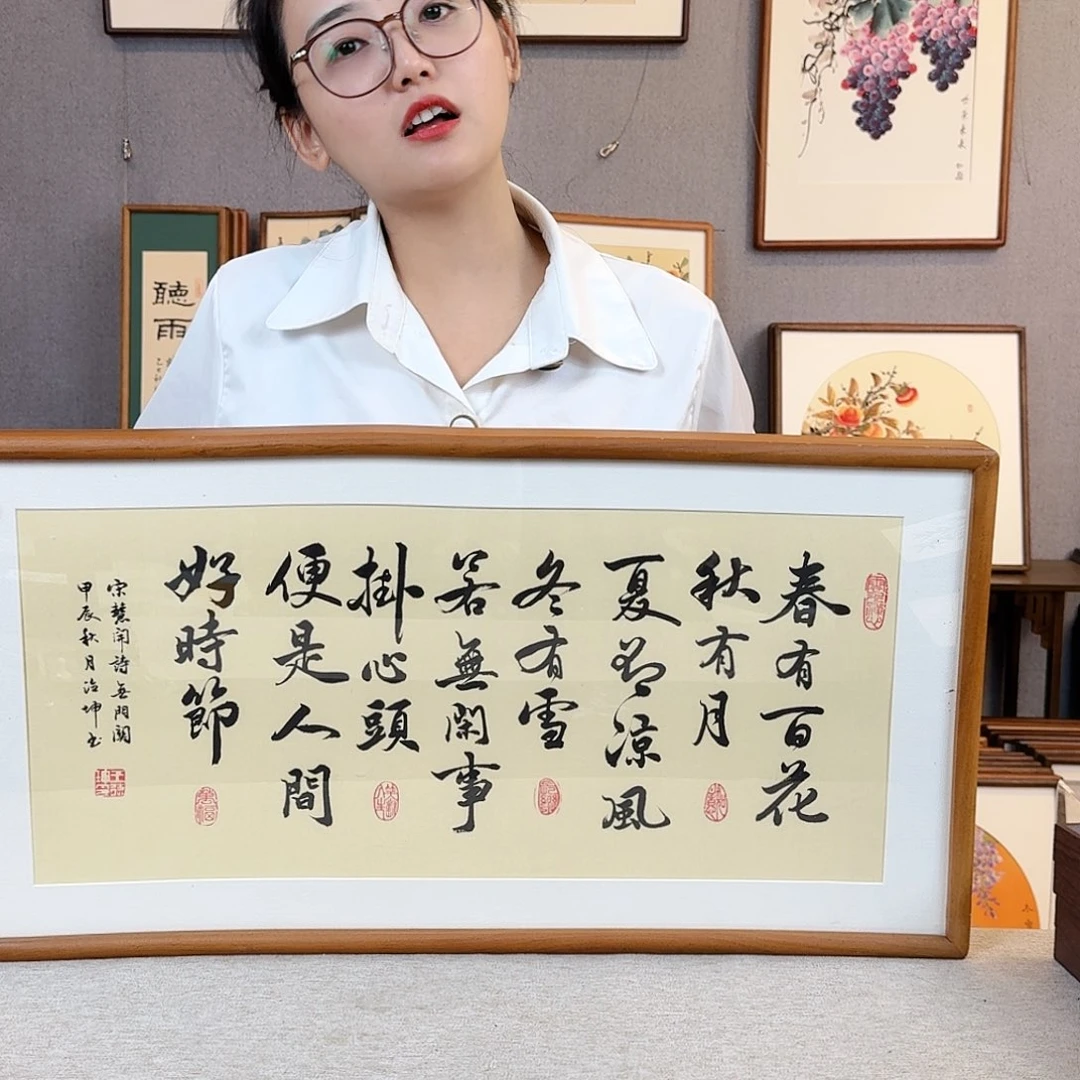 春有百花
秋有月
夏有涼風
冬有雪
若無閑事
掛心頭
便是人間
好時節
宋慧開詩無門關
甲辰秋月治坤書
聽雨